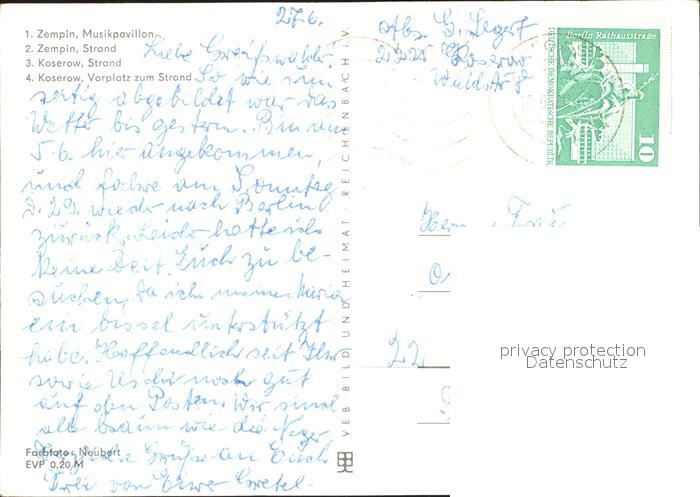 27.6.
1. Zempin, Musikpavillon
2. Zempin, Strand
3. Koserow, Strand
4. Koserow, Vorplatz zum Strand
Liebe Greifswalder!
So wie um
seitig abgebildet war das
Wetter bis gestern. Bin am
5.6. hier angekommen,
und fahre am Sonntag
d. 29. wieder nach Berlin
zurück. Leider hatte ich
keine Zeit, Euch zu be-
suchen, da ich meine Maria
ein bissel unterstützt
habe. Hoffentlich seit Ihr
sowie Uschi noch gut
auf den Posten. Wir sind
alle braun wie die Neger.
Grüße an Euch
Drei von Eurer Gretel.
Farbfoto: Neubert
EVP 0,20 M
VEB BILD UND HEIMAT REICHENBACH i. V.
Abs. G.
2225 Koserow
Waldstr. 8
Berlin Rathausstraße
DEUTSCHE DEMOKRATISCHE REPUBLIK
10
Frau
22
privacy protection
Datenschutz